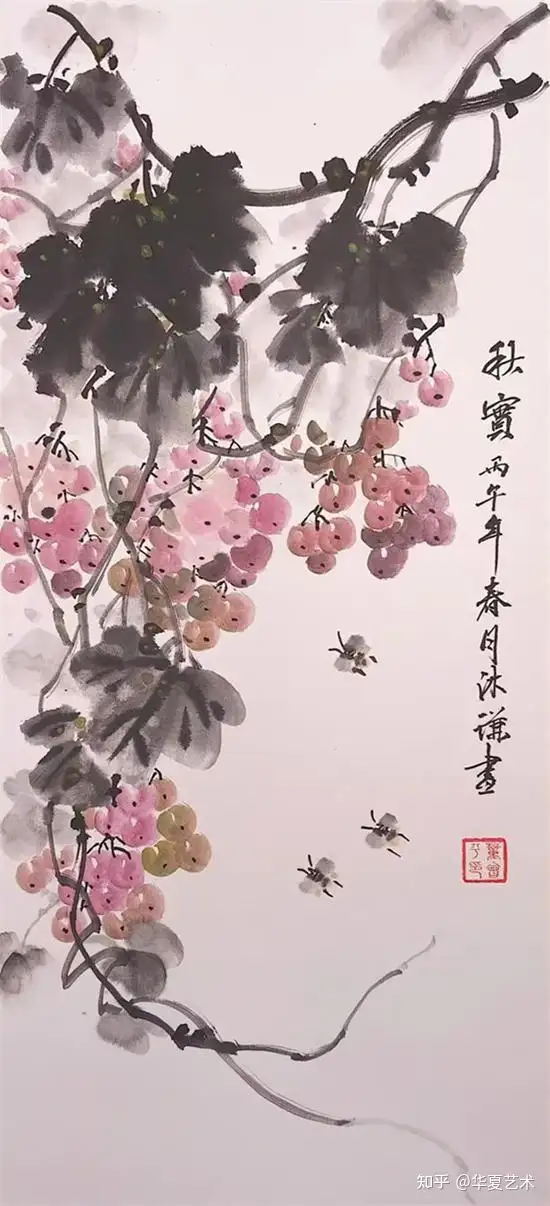 秋實丙午年春月沐謙畫
知乎 @华夏艺术